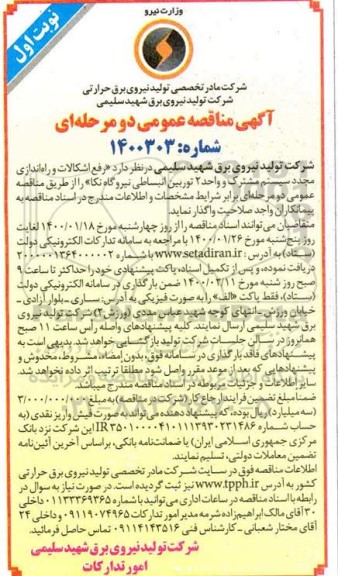 وزارت نیرو
نوبت اول
شرکت مادر تخصصی تولید نیروی برق حرارتی
شرکت تولید نیروی برق شهید سلیمی
آگهی مناقصه عمومی دو مرحله‌ای
شماره: ۱۴۰۰۳۰۳
شرکت تولید نیروی برق شهید سلیمی در نظر دارد «رفع اشکالات و راه‌اندازی
مجدد سیستم مشترک و واحد ۲ توربین انبساطی نیروگاه نکا» را از طریق مناقصه
عمومی دو مرحله‌ای برابر شرایط مشخصات و اطلاعات مندرج در اسناد مناقصه به
پیمانکاران واجد صلاحیت واگذار نماید.
متقاضیان می‌توانند اسناد مناقصه را از روز چهارشنبه مورخ ۱۴۰۰/۰۱/۱۸ لغایت
روز پنج‌شنبه مورخ ۱۴۰۰/۰۱/۲۶ با مراجعه به سامانه تدارکات الکترونیکی دولت
(ستاد) به آدرس: www.setadiran.ir با شماره
دریافت نموده، و پس از تکمیل اسناد، پاکت پیشنهادی خود را حداکثر تا ساعت ۹
صبح روز شنبه مورخ ۱۴۰۰/۰۲/۱۱ ضمن بارگذاری در سامانه الکترونیکی دولت
(ستاد)، فقط پاکت «الف» را به صورت فیزیکی به آدرس: ساری - بلوار آزادی -
خیابان ورزش - انتهای کوچه شهید عباس مددی (ورزش ۲) شرکت تولید نیروی
برق شهید سلیمی ارسال نمایند. کلیه پیشنهادهای واصله راس ساعت ۱۱ صبح
همانروز در سالن جلسات شرکت تولید بازگشایی خواهد شد. بدیهی است به
پیشنهادهای فاقد بارگذاری در سامانه فوق، بدون امضاء، مشروط، مخدوش و
پیشنهادهایی که بعد از موعد مقرر واصل شود مطلقا ترتیب اثر داده نخواهد شد.
سایر اطلاعات و جزئیات مربوطه در اسناد مناقصه مندرج میباشد.
ضمنا مبلغ تضمین فرایند ارجاع کار (شرکت در مناقصه) به مبلغ ۳/۰۰۰/۰۰۰/۰۰۰
(سه میلیارد) ریال بوده، که پیشنهاد دهنده می‌تواند به صورت فیش واریز نقدی (به
حساب شماره این شرکت نزد بانک
مرکزی جمهوری اسلامی ایران) یا ضمانتنامه بانکی، براساس آخرین آئین‌نامه
تضمین معاملات دولتی، تسلیم نمایند.
اطلاعات مناقصه فوق در سایت شرکت مادر تخصصی تولید نیروی برق حرارتی
کشور به آدرس www.tpph.ir نیز ثبت گردیده است. در صورت نیاز به سوال در
رابطه با اسناد مناقصه در ساعات اداری می‌توانید با شماره ۰۱۱۳۳۳۶۹۳۶۵
۳۰ آقای مالک ابراهیم‌زاده شرمه مدیر امور تدارکات ۰۹۱۱۹۰۷۴۹۶۵ و داخلی ۲۴
آقای مختار شعبانی - کارشناس فنی ۰۹۱۱۴۱۴۳۵۱۶ تماس حاصل فرمایند.
شرکت تولید نیروی برق شهید سلیمی
امور تدارکات